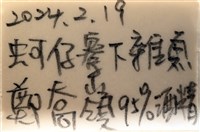 2024.2.19
蚵仔寮下雜魚
鄭喬镇 95%酒精